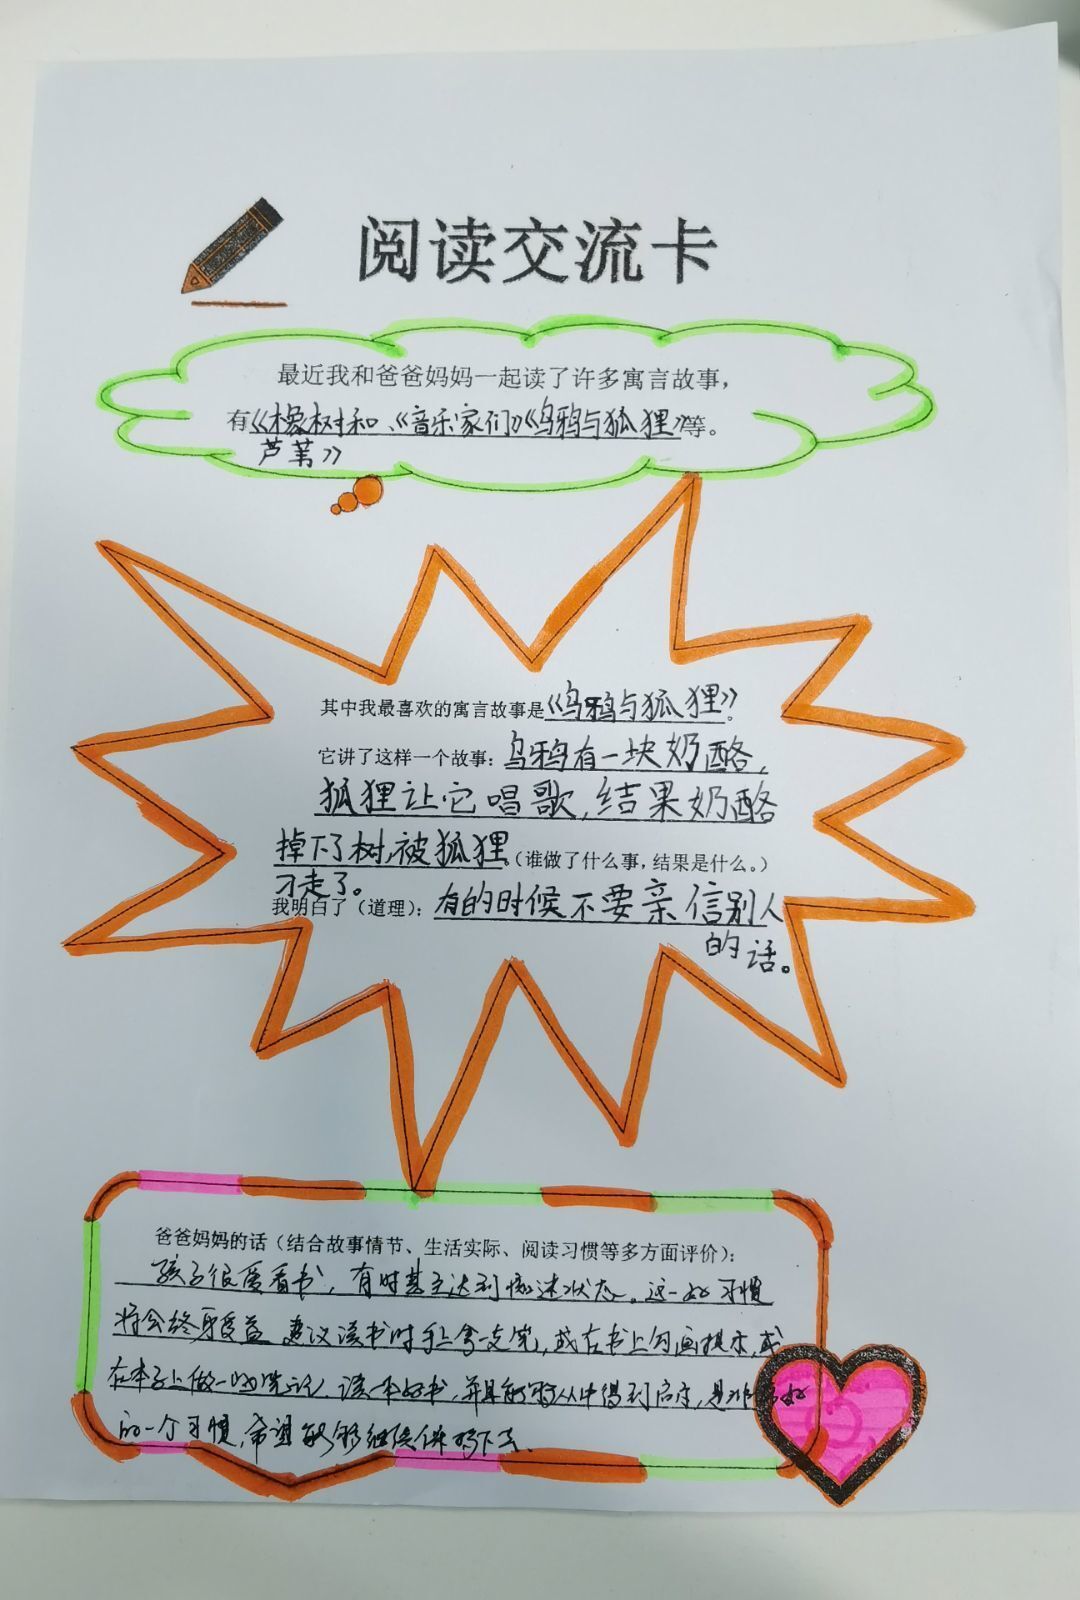 阅读交流卡
最近我和爸爸妈妈一起读了许多寓言故事，
有《橡树和、《音乐家们》《乌鸦与狐狸》等。
芦苇》
其中我最喜欢的寓言故事是《乌鸦与狐狸》.
它讲了这样一个故事：乌鸦有一块奶酪，
狐狸让它唱歌，结果奶酪
掉下了树，被狐狸。（谁做了什么事，结果是什么。）
刁走了。
我明白了（道理）：有的时候不要亲信别人
的话。
爸爸妈妈的话（结合故事情节、生活实际、阅读习惯等多方面评价）：
孩子很爱看书，有时甚至达到痴迷状态。这一好习惯
将会终身受益 建议读书时手上拿一支笔，或在书上勾画提示，或
在本子上做一些笔记、读一本好书，并且能够从中得到启示，是非常好
的一个习惯，希望能够继续保持下去.